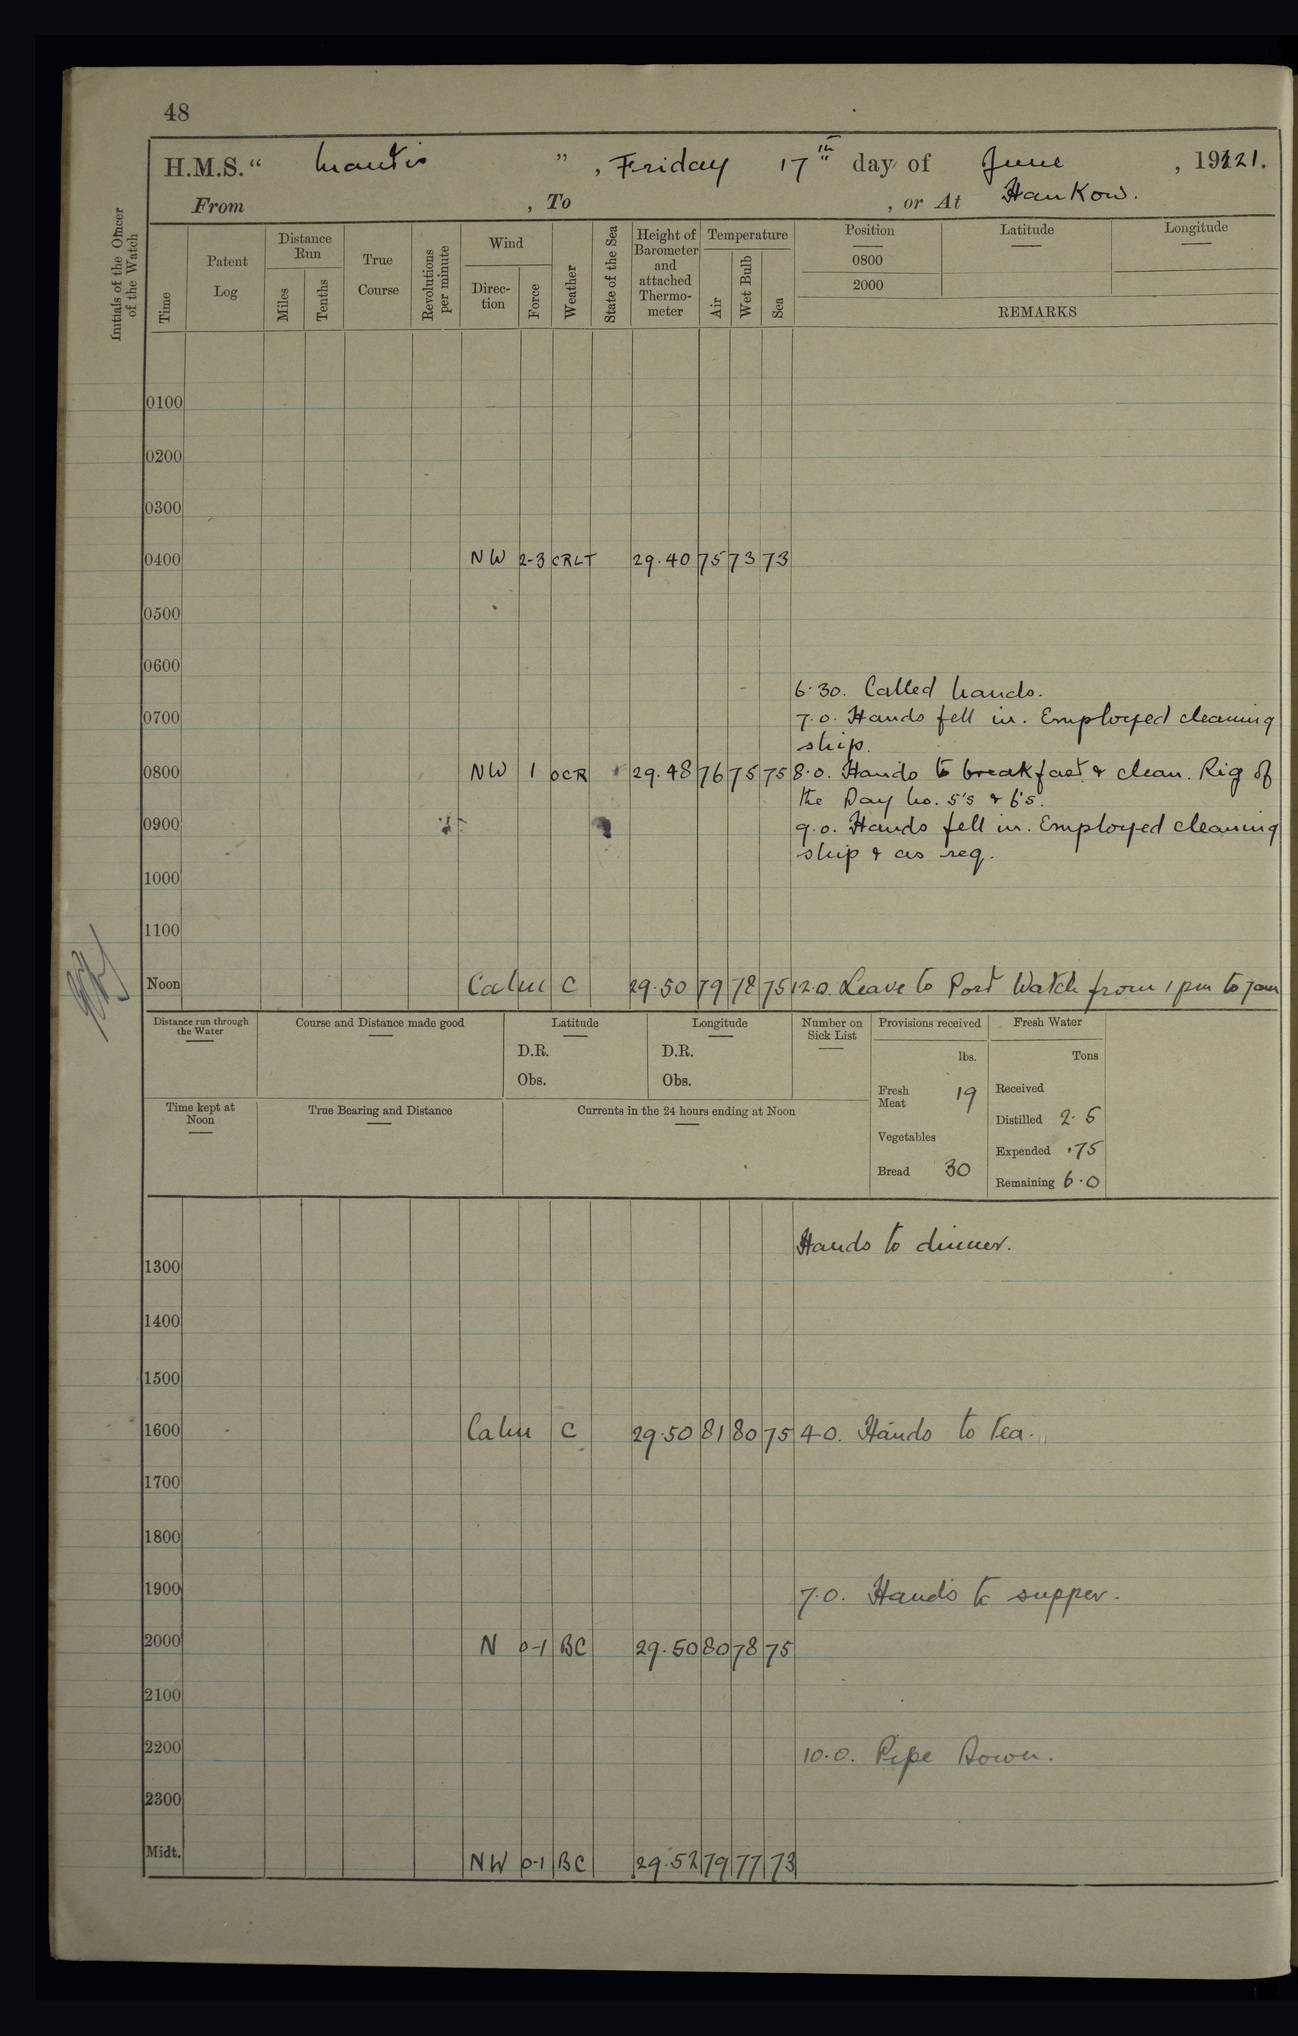 48
H.M.S. “ Mantis ” , Friday 17th day of June , 1921.
From , To , or At Hankow.
Initials of the Officer of the Watch
Time
Patent Log
Distance Run
Miles
Tenths
True Course
Revolutions per minute
Wind
Direc-tion
Force
Weather
State of the Sea
Height of Barometer and attached Thermo-meter
Temperature
Air
Wet Bulb
Sea
Position
0800
2000
Latitude
Longitude
REMARKS
0100
0200
0300
0400 NW 2-3 CRLT 29.40 75 73 73
0500
0600
6.30. Called hands.
0700 7.0. Hands fell in. Employed cleaning
ship.
0800 NW 1 OCR 29.48 76 75 75 8.0. Hands to breakfast & clean. Rig of
the Day No. 5's & 6's.
0900 9.0. Hands fell in. Employed cleaning
ship & as req.
1000
1100
Noon Calm C 29.50 79 78 75 12.0. Leave to Port Watch from 1 pm to 7am
Distance run through the Water
Course and Distance made good
Latitude
D.R.
Obs.
Longitude
D.R.
Obs.
Number on Sick List
Provisions received
lbs.
Fresh Meat 19
Vegetables
Bread 30
Fresh Water
Tons
Received
Distilled 2.5
Expended .75
Remaining 6.0
Time kept at Noon
True Bearing and Distance
Currents in the 24 hours ending at Noon
Hands to dinner.
1300
1400
1500
1600 Calm C 29.50 81 80 75 4.0. Hands to tea.
1700
1800
1900 7.0. Hands to supper.
2000 N 0-1 BC 29.50 80 78 75
2100
2200 10.0. Pipe Down.
2300
Midt. NW 0-1 BC 29.52 79 77 73